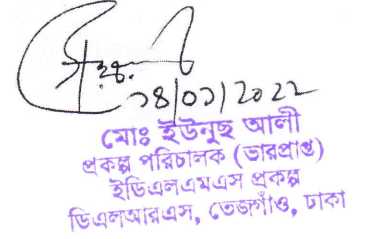 ১৪/০১/২০২২
মোঃ ইউনুছ আলী
প্রকল্প পরিচালক (ভারপ্রাপ্ত)
ইডিএলএমএস প্রকল্প
ডিএলআরএস, তেজগাঁও, ঢাকা